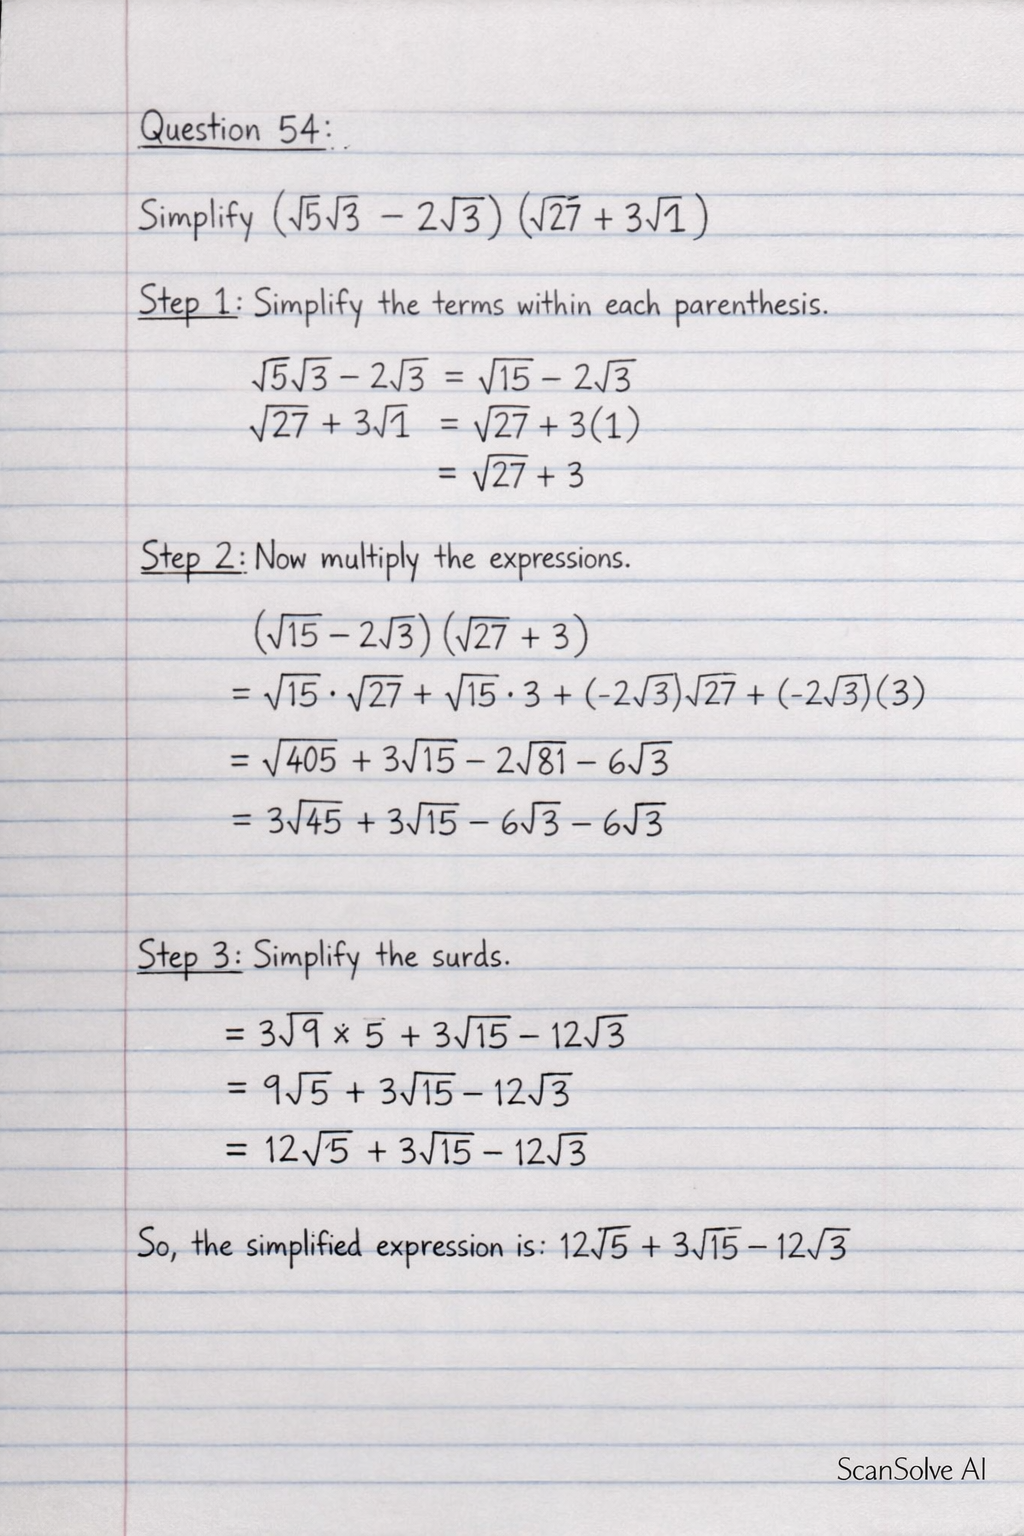 Question 54:
Simplify (√5√3 − 2√3) (√27 + 3√1)
Step 1: Simplify the terms within each parenthesis.
√5√3 − 2√3 = √15 − 2√3
√27 + 3√1 = √27 + 3(1)
= √27 + 3
Step 2: Now multiply the expressions.
(√15 − 2√3) (√27 + 3)
= √15 · √27 + √15 · 3 + (-2√3)√27 + (-2√3)(3)
= √405 + 3√15 − 2√81 − 6√3
= 3√45 + 3√15 − 6√3 − 6√3
Step 3: Simplify the surds.
= 3√9 × 5 + 3√15 − 12√3
= 9√5 + 3√15 − 12√3
= 12√5 + 3√15 − 12√3
So, the simplified expression is: 12√5 + 3√15 − 12√3
ScanSolve AI